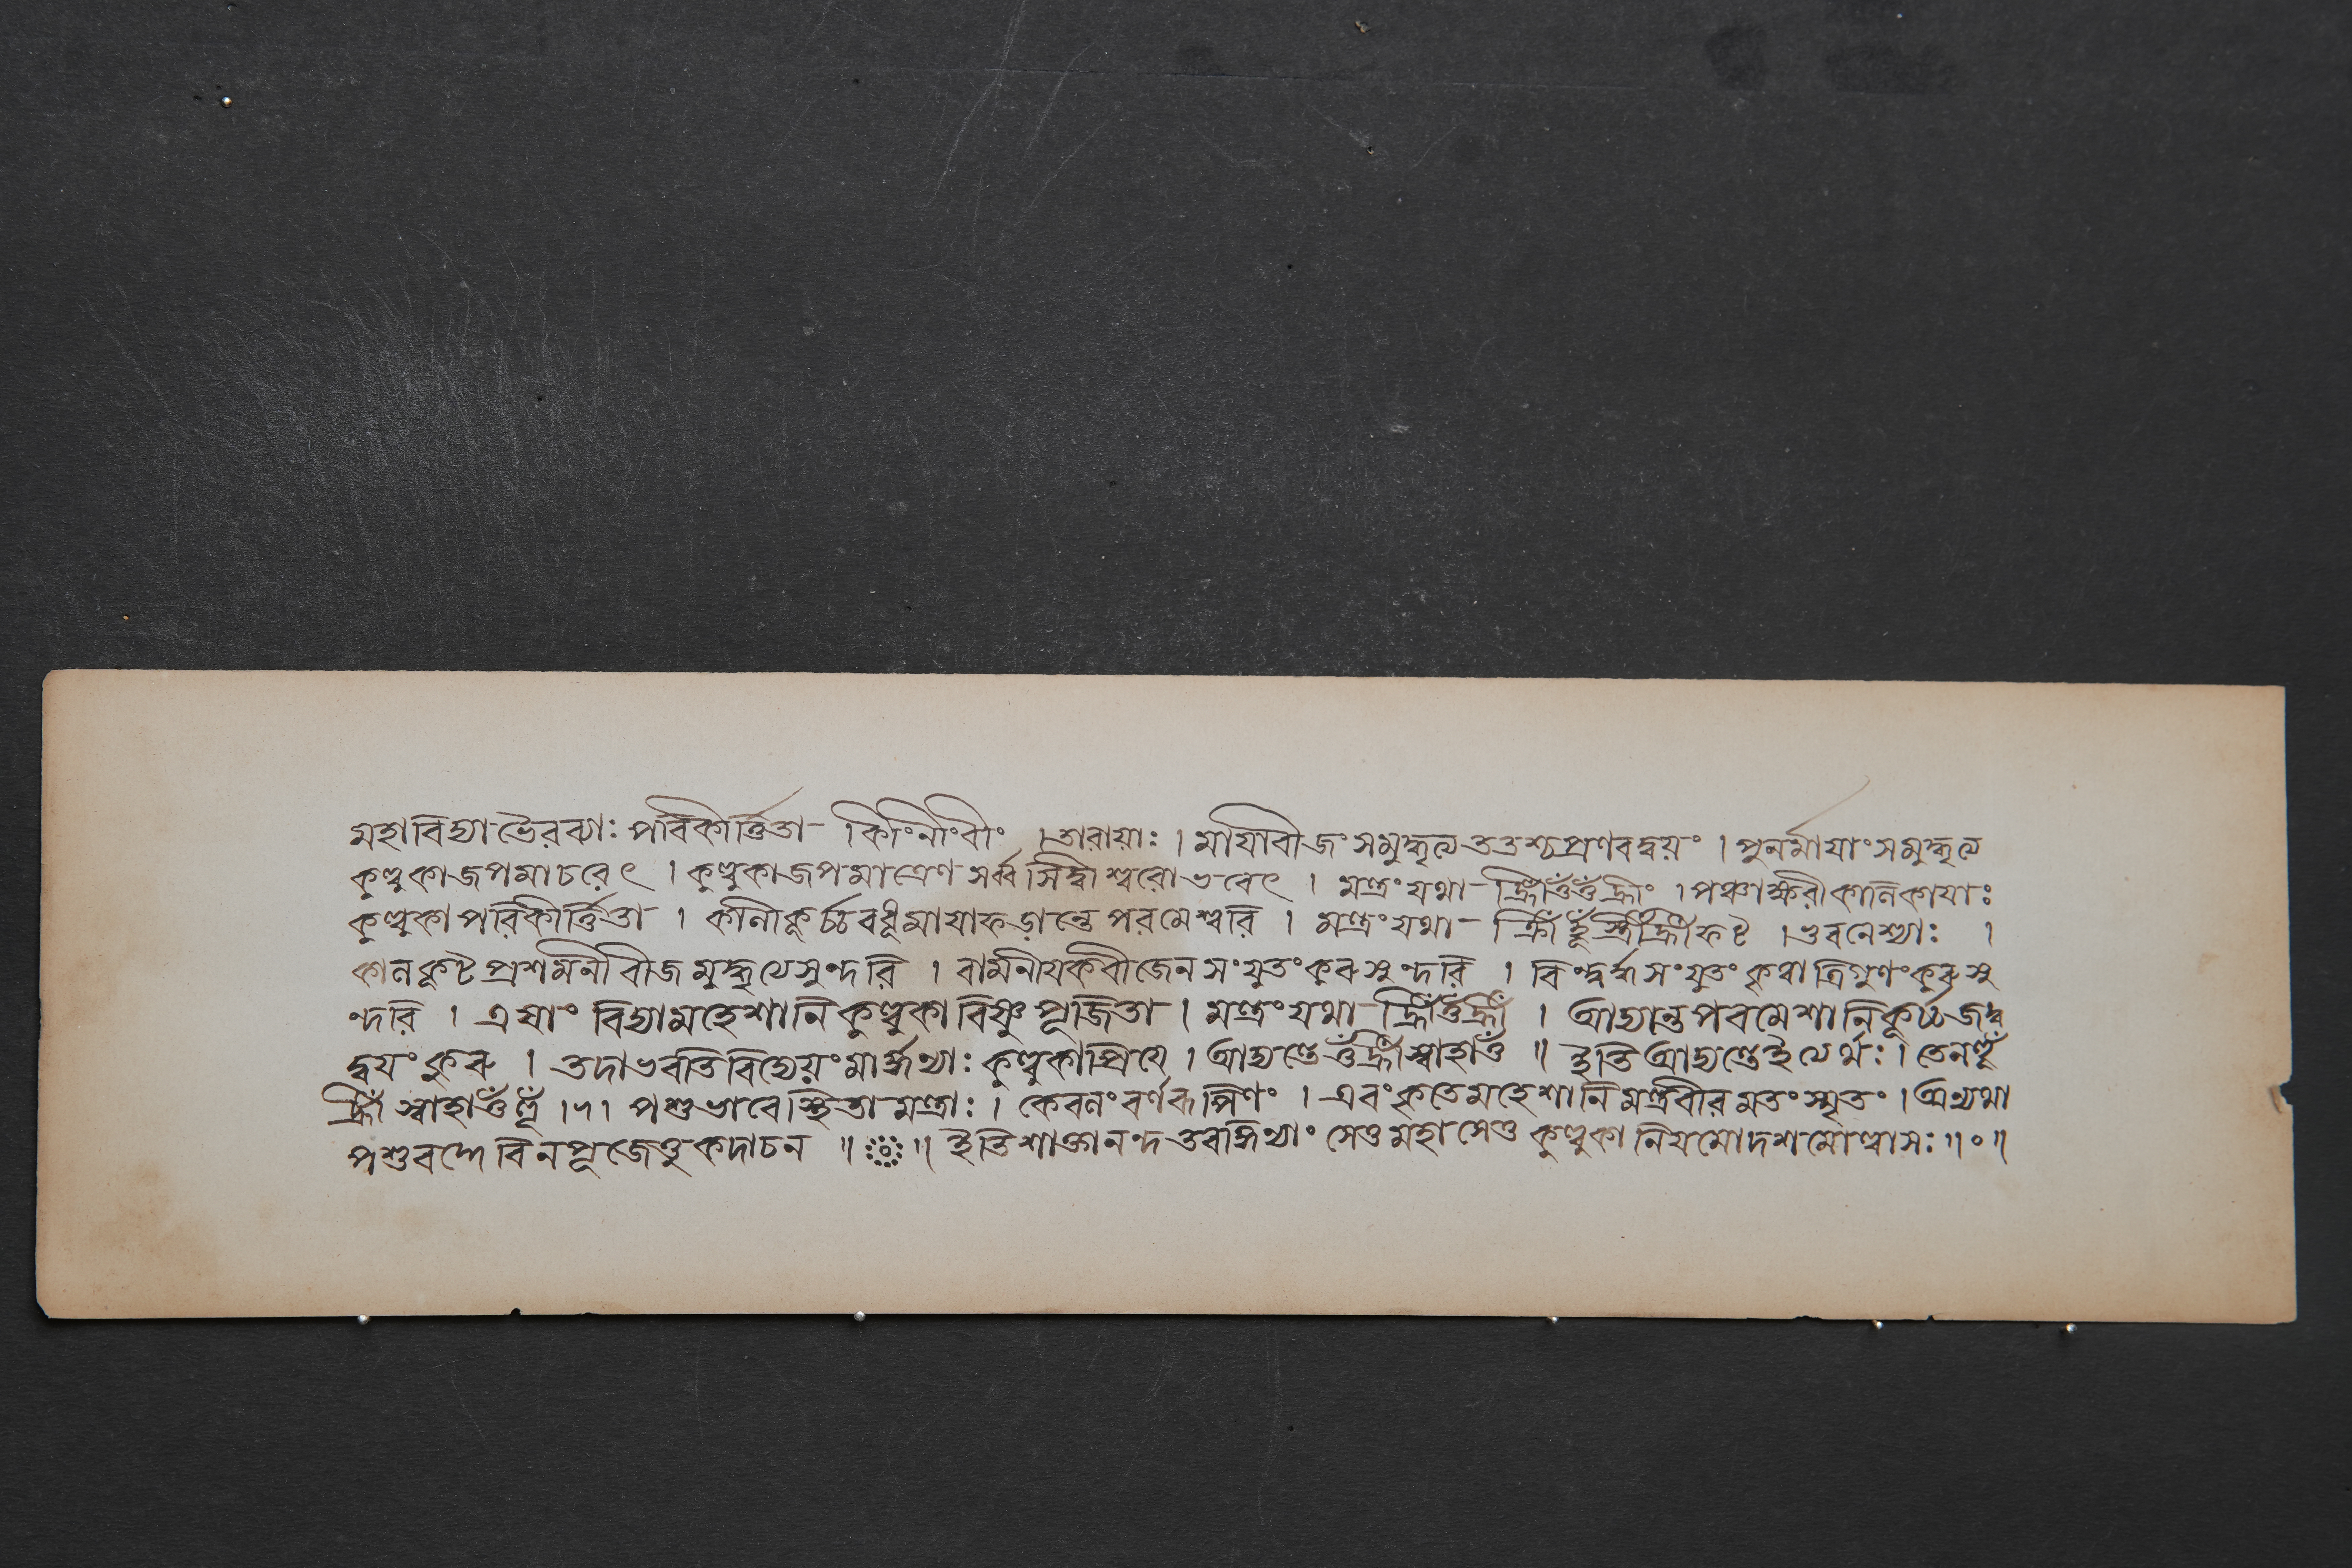 মহাবিদ্যা ভৈরব্যাঃ পরিকীর্ত্তিতা । তারায়াঃ । মায়াবীজং সমুদ্ধৃত্য ততশ্চ প্রণবদ্বয়ং । পুনর্মায়াং সমুদ্ধৃত্য
কুল্লুকাজপমাচরেৎ । কুল্লুকাজপমাত্রেণ সর্ব্বসিদ্ধীশ্বরোভবেৎ । মন্ত্রং যথা হ্রীঁওঁওঁহ্রীং । পঞ্চাক্ষরী কালিকায়াঃ
কুল্লুকা পরিকীর্ত্তিতা । কালীকূর্চ্চবধূমায়াফড়ান্তে পরমেশ্বরি । মন্ত্রং যথা ক্রীঁহূঁস্ত্রীঁহ্রীঁফট্ । ভুবনেশ্যাঃ ।
কালকূটপ্রশমনীবীজমুদ্ধৃত্যেসুন্দরি । সংযুতং কুরু সুন্দরি । সংযুতং কৃত্বা ত্রিগুণং কুরু সু
ন্দরি । এষাং বিদ্যা মহেশানি কুল্লুকা বিষ্ণুপূজিতা । মন্ত্রং যথা । আদ্যন্ত পরমেশানি
দ্বয়ং কুরু । তদা ভবতি বিদ্যেয়ং কুল্লুকা প্রিয়ে । আদ্যন্তে ওঁহ্রীঁস্বাহাওঁ ॥ ইতি আদ্যন্তে ইত্যর্থঃ । তেন
হ্রীঁ স্বাহাওঁ পশুভাবে স্থিতা মন্ত্রাঃ । কেবলং বর্ণরূপিণং । এবং কৃতে মহেশানি মন্ত্রবীরমতং স্মৃতং । অন্যথা
পশুবদ্দেবি ন পূজেত্তু কদাচন ॥ ॥ ইতি শাক্তানন্দতরঙ্গিণ্যাং সেতু মহাসেতু কুল্লুকা নিয়মোদশমোল্লাসঃ ॥०॥